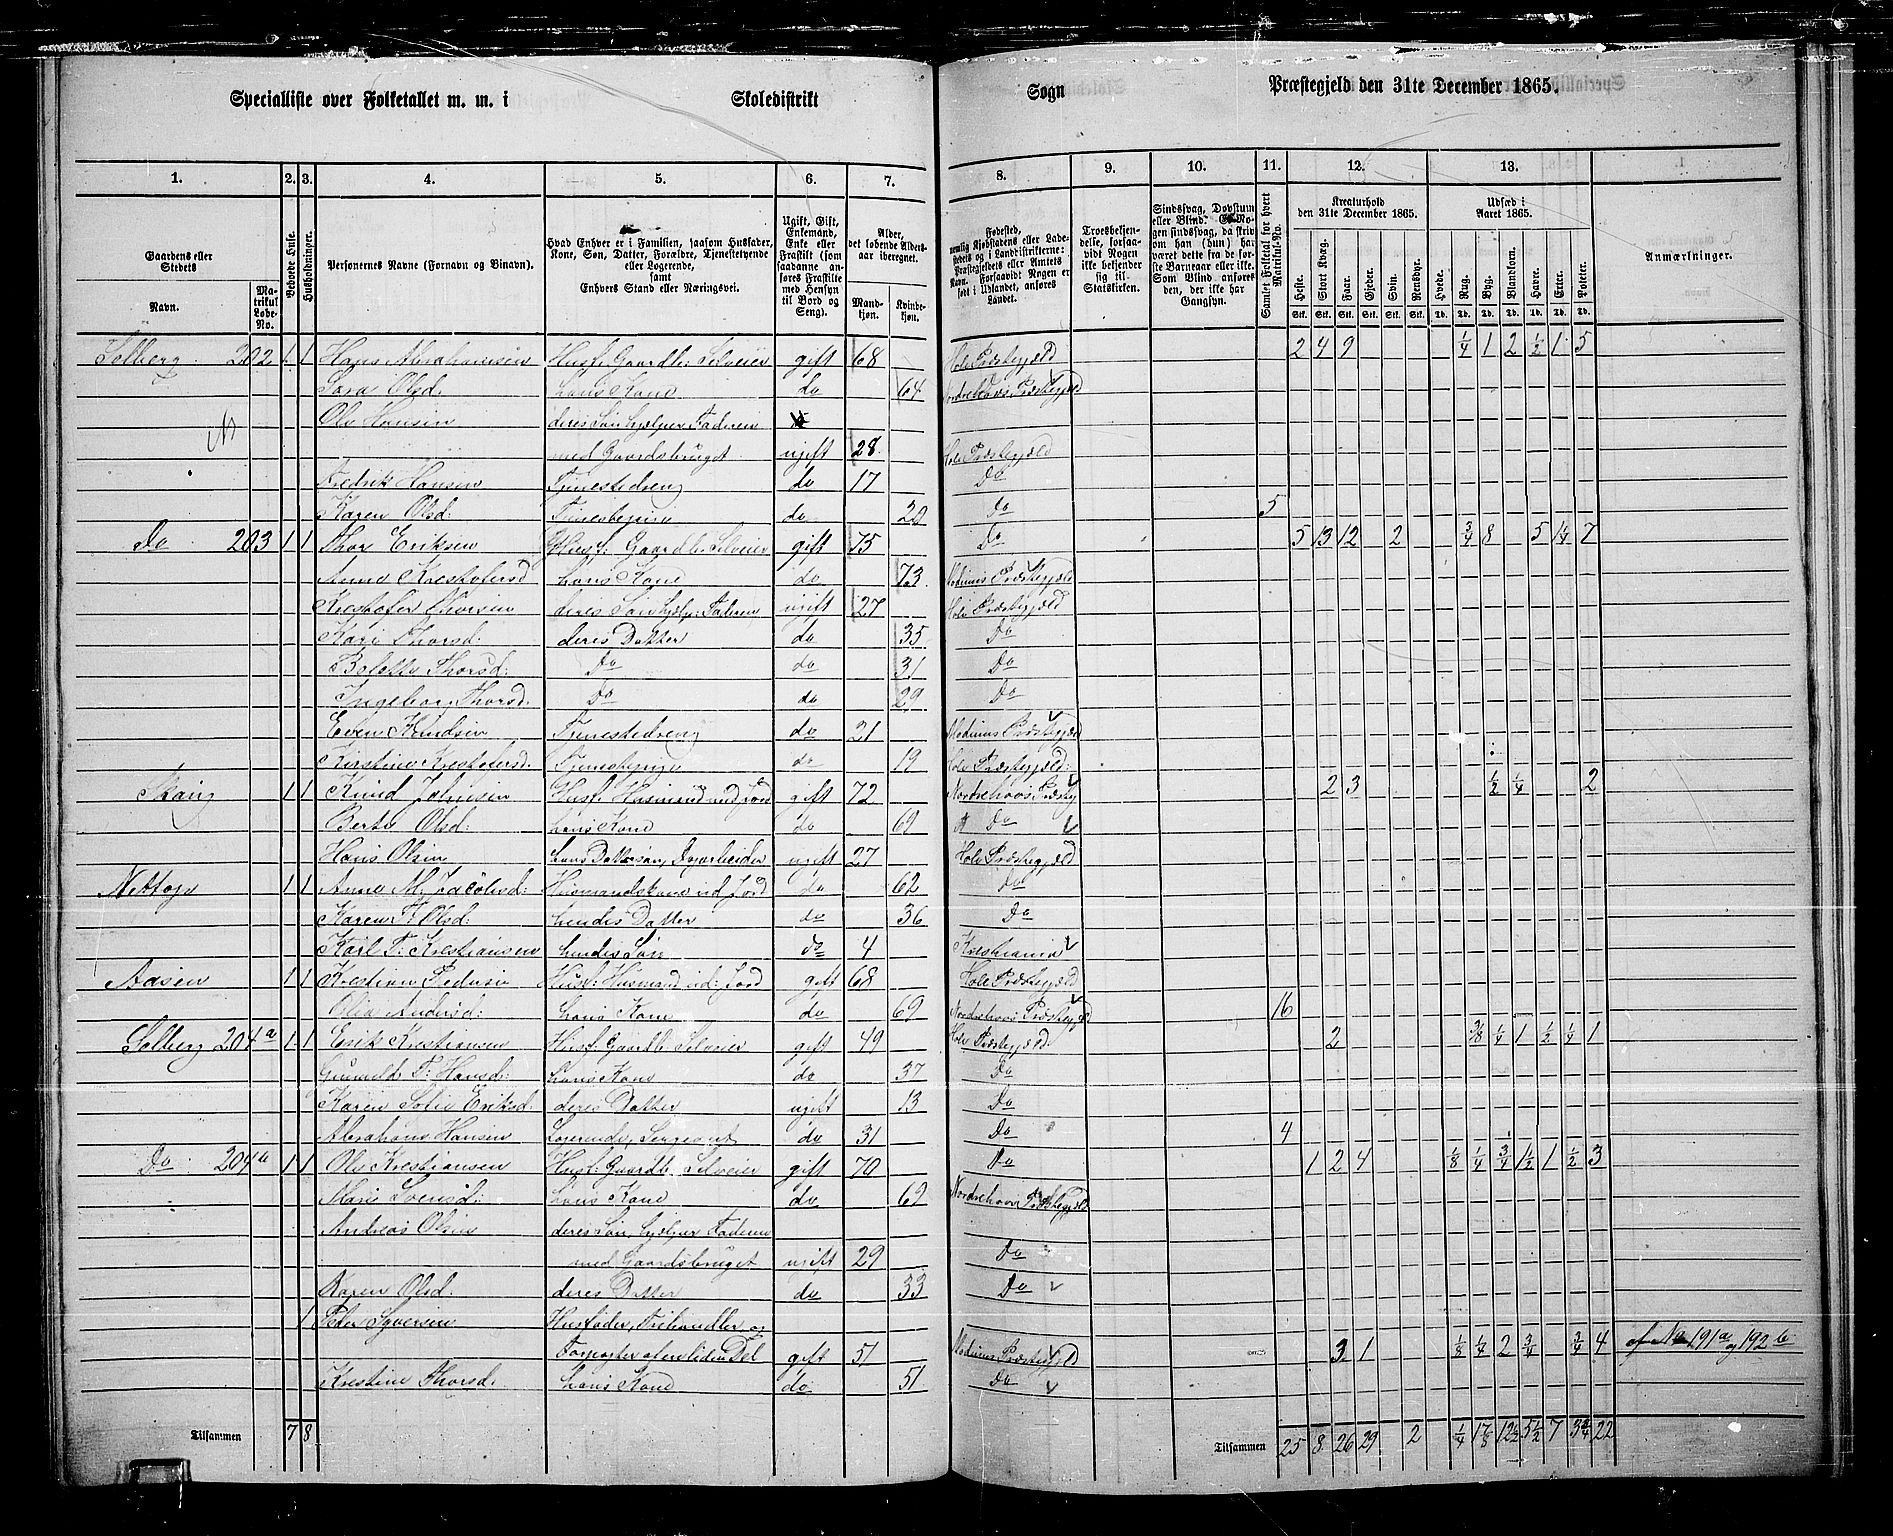 Specialliste over Folketallet m. m. i Skoledistrikt
Sogn Præstegjeld den 31te December 1865.
1. 2. 3. 4. 5. 6. 7. 8. 9. 10. 11. 12. 13.
Gaardens eller Stedets
Navn.
Matrikul Løbe-No.
Beboede Huse.
Husholdninger.
Personernes Navne (Fornavn og Binavn).
Hvad Enhver er i Familien, saasom Husfader, Kone, Søn, Datter, Forældre, Tjenestetyende eller Logerende, samt Enhvers Stand eller Næringsvei.
Ugift, Gift, Enkemand, Enke eller Fraskilt (som saadanne anføres Fraskilte med Hensyn til Bord og Seng).
Alder, det løbende Aldersaar iberegnet.
Mandkjøn. Kvindekjøn.
Fødested, nemlig Kjøbstadens eller Ladestedets og i Landdistrikterne: Præstegjeldets eller Amtets Navn. Forsaavidt Nogen er født i Udlandet, anføres Landet.
Troesbekjendelse, forsaavidt Nogen ikke bekjender sig til Statskirken.
Sindssvag, Døvstum eller Blind.
Samlet Folketal for hvert Matrikul-No.
Kreaturhold den 31te December 1865.
Heste. Stort Kvæg. Faar. Gjeder. Svin. Rensdyr.
Udsæd i Aaret 1865.
Hvede. Rug. Byg. Blandkorn. Havre. Erter. Poteter.
Anmærkninger.
Solberg 202 1 1 Hans Abrahamsen Husf: Gaardb: Selveier gift 68 Hole Præstegjæld 2 4 9 1/4 1 2 1/2 1 5
Sara Olsd: hans Kone do 64 Nordrehovs Præstegjæld
Ole Hansen deres Søn hjelper Faderen
med Gaardsbruget ugift 28 Hole Præstegjæld
Fredrik Hansen Tjenestedreng do 17 Do
Karen Olsd: Tjenestepige do 20 Do 5
Do 203 1 1 Thor Eriksen Husf: Gaardb: Selveier gift 75 Do 5 13 12 2 3/4 8 5 1/4 7
Anne Krestofersd hans Kone do 73 Modums Præstegjæld
Krestofer Thorsen deres Søn hjelp: Faderen ugift 27 Hole Præstegjæld
Kari Thorsd: deres Datter do 35 Do
Bolette Thorsd: Do do 31 Do
Ingeborg Thorsd. Do do 29 Do
Even Knudsen Tjenestedreng do 21 Modums Præstegjæld
Kirstine Krestofersd: Tjenestepige do 19 Hole Præstegjæld:
1 1 Knud Johnsen Husf: Husmand med Jord gift 72 Nordrehovs Præsteg 2 3 1/2 1/4 2
Berte Olsd: hans Kone do 69 Do
Hans Olsen hans Dattersøn, Dagarbeider ugift 27 Hole Præstegjæld
1 1 Anne M. Jacobsd: Husmandskone med Jord do 62 Do
Karen T. Olsd: hendes Datter do 36 Do
Karl T: Krestiansen hendes Søn do 4 Kristiania
Aasen 1 1 Krestian Pedersen Husf: Husmand med Jord gift 68 Hole Præstegjæld
Olia Andersd: hans Kone do 69 Nordrehovs Præstegjæld 16
Solberg 204 a 1 1 Erik Krestiansen Husf: Gaardb: Selveier gift 49 Hole Præstegjæld 2 3/8 1/4 1 1/2 1/4 1
Gunnild T: Hansd: hans Kone do 37 Do
Karen Sofie Eriksd: deres Datter ugift 13 Do
Abraham Hansen Logerende, Sergeant do 31 Do 4
Do 204 b 1 1 Ole Krestiansen Husf: Gaardb. Selveier gift 70 Do 1 2 4 1/8 1/4 3/4 1 1/2 1 1/2 3
Marie Svensd: hans Kone do 69 Nordrehovs Præstegjæld
Andreas Olsen deres Søn, hjelper Faderen
med Gaardsbruget ugift 29 Do
Karen Olsd: deres Datter do 33 Do
1 Peder Syversen Husfader, Frehandler og
Forpagter af en liden Del gift 51 Modums Præstegjæld 3 1 1/8 1/4 2 3/4 3/4 4 af No 191 a og 192 b
Krestine Thorsd. hans Kone do 51 Do
Tilsammen 7 8
Tilsammen 25 8 26 29 2 1/4 1 7/8 12 1/2 5 1/2 7 3 3/4 22